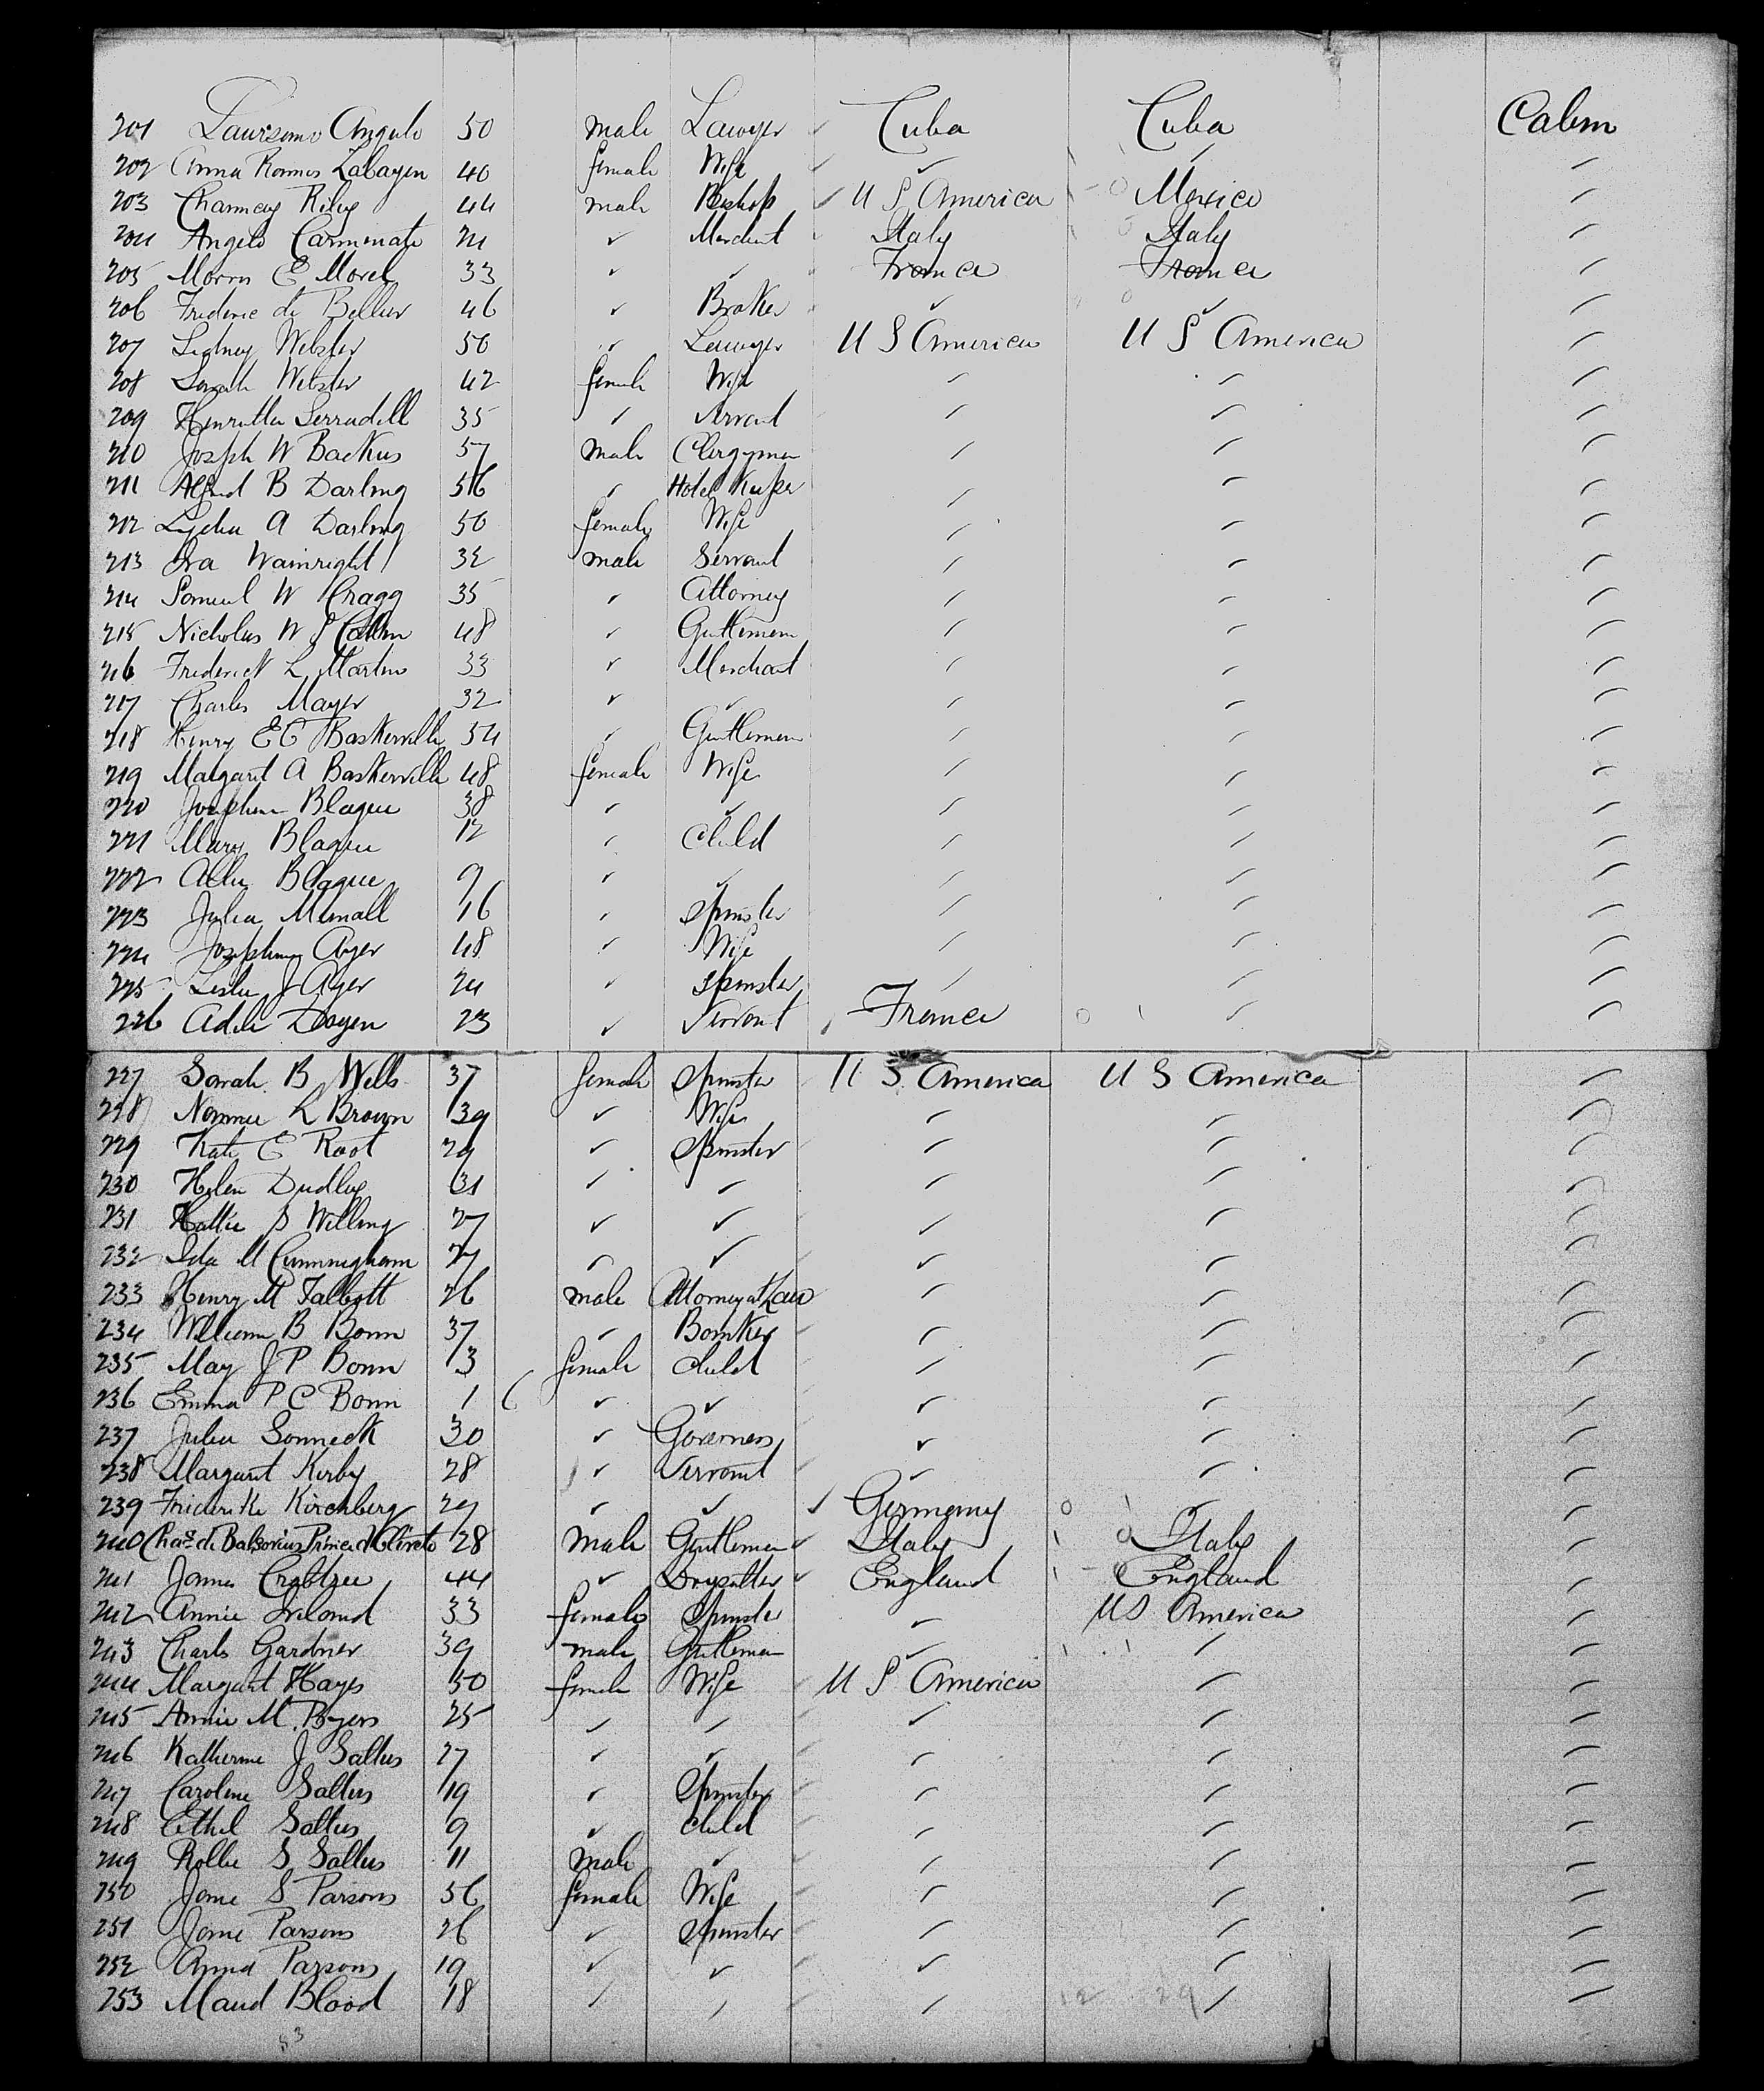 201 Laursomo Angulo 50 male Lawyer ✓ Cuba Cuba Cabin
202 Anna Rommos Zabayen 40 female Wife ✓ ✓ ✓
203 Chauncey Riley 44 male Bishop ✓ U S America Mexico
204 Angelo Carmenate 24 ✓ Merchant Italy Italy
205 Morris E Morel 33 ✓ ✓ France France
206 Frederic de Bellier 46 ✓ Broker ✓ ✓
207 Sidney Webster 50 ✓ Lawyer U S America U S America
208 Sarah Webster 42 female Wife
209 Henrietta Serradell 35 Servant
210 Joseph W Backus 57 male Clergyman
211 Alfred B Darling 56 Hotel Keeper
212 Lydia A Darling 50 female Wife
213 Ira Wainright 32 male Servant
214 Samuel W Cragg 35 Attorney
215 Nicholas W S Catlin 48 Gentleman
216 Frederick L Martin 33 ✓ Merchant
217 Charles Mayer 32 ✓ ✓
218 Henry E C Baskerville 54 Gentleman
219 Malgaret A Baskerville 48 female Wife
220 Josephine Blague 38 ✓ ✓
221 Mary Blague 12 Child
222 Allie Blague 9 ✓ ✓
223 Julia Mimall 16 Spinster
224 Josephine Ayer 48 Wife
225 Leslie J Ayer 24 Spinster
226 Adele Doyen 23 ✓ Servant France
227 Sarah B Wells 37 female Spinster U S America U S America
228 Nannie L Brown 39 ✓ Wife
229 Kate E Root 29 ✓ Spinster
230 Helen Dudley 31 ✓ ✓
231 Hattie S Willing 27 ✓ ✓
232 Ida M Cunningham 27 ✓ ✓
233 Henry M Talbott 26 male Attorney at Law
234 William B Bonn 37 Banker
235 May J P Bonn 3 female Child
236 Emma P C Bonn 1 6 ✓ ✓
237 Julia Sonneck 30 ✓ Governess ✓
238 Margaret Kirby 28 ✓ Servant ✓
239 Friderike Kirchberg 29 ✓ ✓ ✓ Germany ✓
240 Chas de Balsorius Prince d'Cliveto 28 Male Gentleman ✓ Italy Italy
241 James Crabtree 44 ✓ Drysalter ✓ England England
242 Annie Ireland 33 female Spinster ✓ US America
243 Charls Gardner 39 male Gentleman ✓
244 Margaret Hayes 50 female Wife U S America
245 Annie M. Byers 25 ✓ ✓ ✓
246 Katherine J Saltus 27 ✓ ✓
247 Caroline Saltus 19 ✓ Spinster
248 Ethel Saltus 9 ✓ Child
249 Rollie S Saltus 11 male ✓
250 Jane S Parsons 56 female Wife
251 Jane Parsons 26 ✓ Spinster
252 Anna Parsons 19 ✓ ✓ ✓
253 Maud Blood 18 ✓
12 29
53